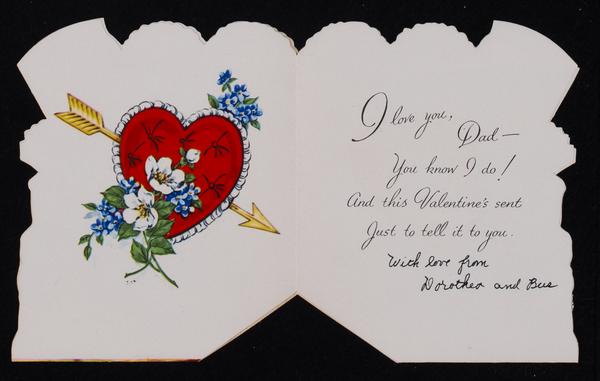 I love you,
Dad—
You know I do!
And this Valentine's sent
Just to tell it to you.
With love from
Dorothea and Bus